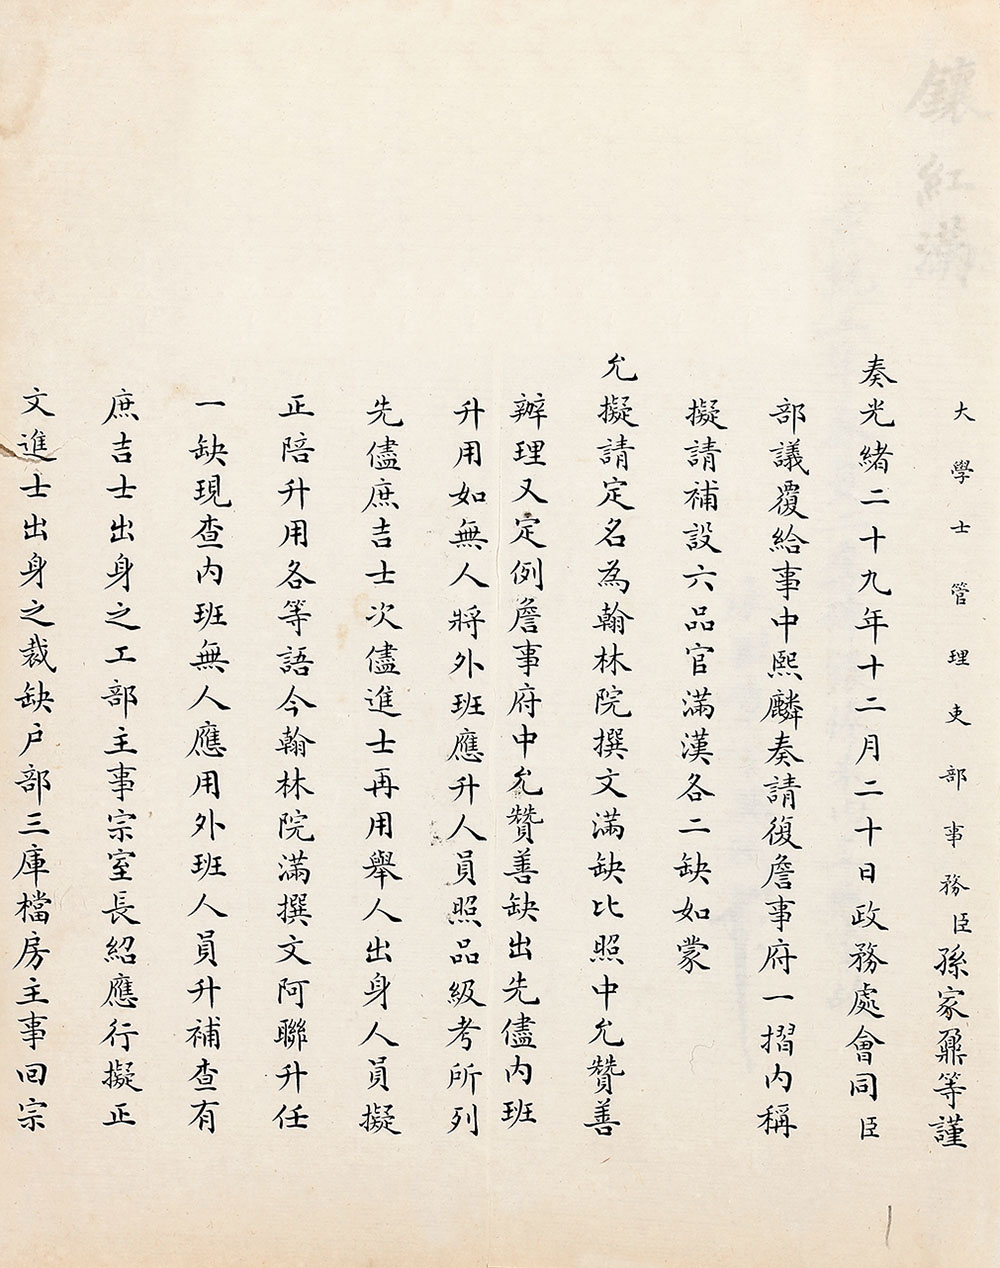 大學士管理吏部事務臣孫家鼐等謹
奏光緒二十九年十二月二十日政務處會同臣
部議覆給事中熙麟奏請復詹事府一摺內稱
擬請補設六品官滿漢各二缺如蒙
允擬請定名為翰林院撰文滿缺比照中允贊善
辦理又定例詹事府中允贊善缺出先儘內班
升用如無人將外班應升人員照品級考所列
先儘庶吉士次儘進士再用舉人出身人員擬
正陪升用各等語今翰林院滿撰文阿聯升任
一缺現查內班無人應用外班人員升補查有
庶吉士出身之工部主事宗室長紹應行擬正
文進士出身之裁缺戶部三庫檔房主事回宗
鑲紅滿